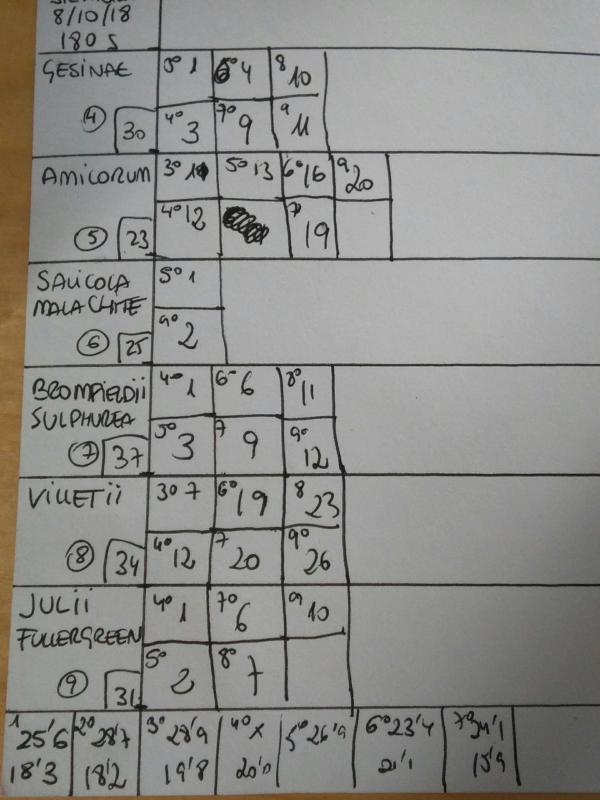 8/10/18
180 S
GESINAE 5º 1 6º 4 8 10
4 30 4º 3 7º 9 9 11
AMICORUM 3º 5º 13 6º 16 9 20
5 23 4º 12 7º 19
SALICOLA 5º 1
MALACHITE
6 25 9º 2
BROMFIELDII 4º 1 6º 6 8º 11
SULPHUREA
7 37 5º 3 7 9 9º 12
VILLETII 3º 7 6º 19 8 23
8 34 4º 12 7 20 9º 26
JULII 4º 1 7º 6 9 10
FULLERGREEN
9 31 5º 2 8º 7
1 25'6 2º 28'7 3º 28'9 4º x 5º 26'9 6º 23'4 7º 34'1
18'3 18'2 19'8 20'0 21'1 15'9